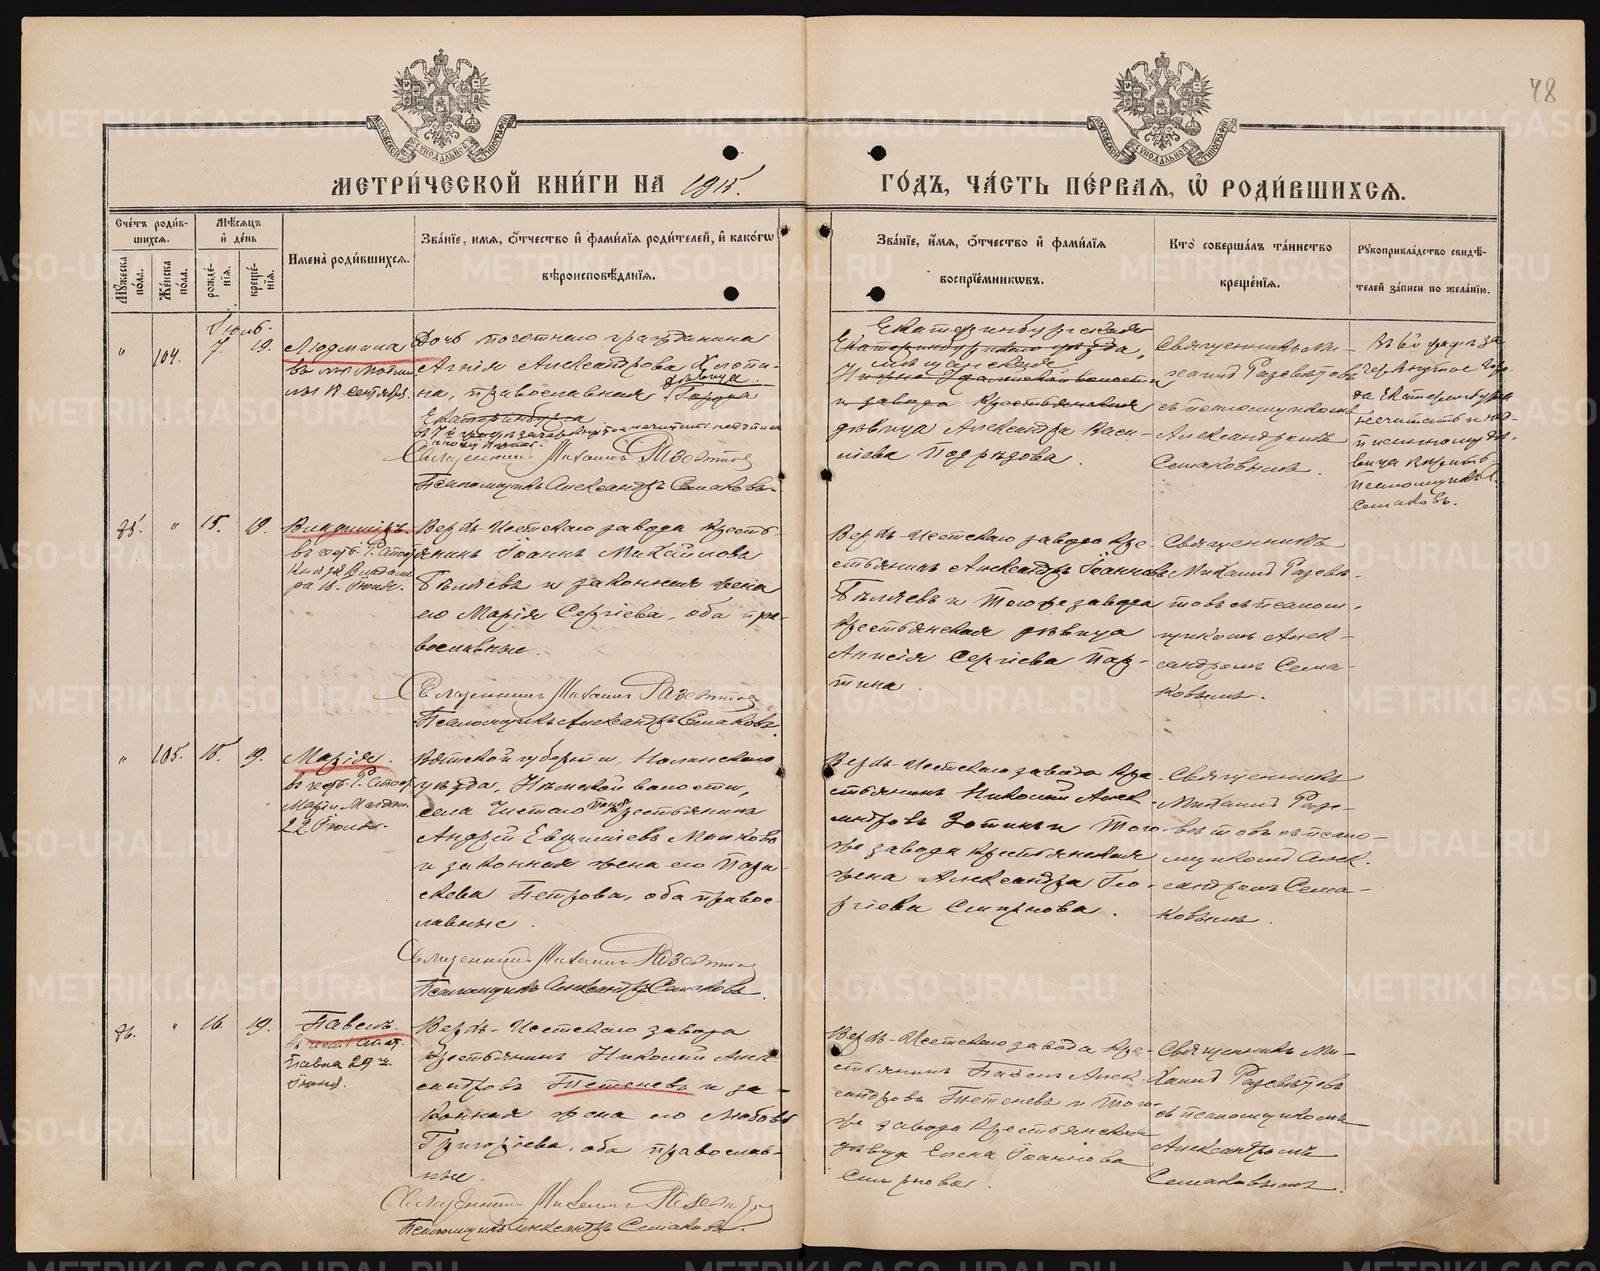 48
МЕТРИ́ЧЕСКОЙ КНИ́ГИ НА 1915.
ГО́ДЪ, ЧА́СТЬ ПЕ́РВАЯ, Ѡ РОДИ́ВШИХСЯ.
Сче́тъ роди́вшихся.
Мꙋ́жеска по́ла.
Же́нска по́ла.
Мѣ́сяцъ и де́нь
рожде́нїя.
креще́нїя.
Имена̀ роди́вшихся.
Зва́нїе, имя, ѻ́тчество и фами́лїя роди́телей, и како́гѡ
вѣроисповѣ́данїя.
Зва́нїе, и́мя, ѻ́тчество и фами́лїя
воспрїе́мникѡвъ.
Кто̀ соверша́лъ та́инство
креще́нїя.
Рꙋкоприкла́дство свидѣ́-
телей за́писи по жела́нїю.
Іюнь.
" 104. 7. 19.
Людмила
18 сентября
Дочь почетнаго гражданина
Агнія Александрова Хлопи-
на, православная
Екатеринбурга
Священникъ Михаилъ Развѣтовъ
Псаломщикъ Александръ Семаковъ
Екатеринбургская
Екатеринбургскаго уѣзда,
мѣщанская
и завода крестьянская
дѣвица Александра Васи-
ліева Подрѣзова.
Священникъ Ми-
хаилъ Развѣтовъ
съ псаломщикомъ
Александромъ
Семаковымъ.
Псаломщикъ
Семаковъ.
75. " 15. 19.
Владиміръ
въ честь Р. Апост.
Князя Владими-
ра 15 Іюля.
Верхъ-Исетскаго завода кресть-
янинъ Іоаннъ Михайловъ
Бѣляевъ и законная жена
его Марія Сергіева, оба пра-
вославные.
Священникъ Михаилъ Развѣтовъ
Псаломщикъ Александръ Семаковъ.
Верхъ-Исетскаго завода кре-
стьянинъ Александръ Іоанновъ
Бѣляевъ и того же завода
крестьянская дѣвица
Анисія Сергіева Пар-
тина.
Священникъ
Михаилъ Развѣ-
товъ съ псалом-
щикомъ Алек-
сандромъ Сема-
ковымъ.
" 105. 18. 19.
Марія.
въ честь Р. Апост.
Маріи Магдал.
22 Іюля.
Вятской губерніи, Нолинскаго
уѣзда, Немской волости,
села Чистаго крестьянинъ
Андрей Евфиміевъ Малковъ
и законная жена его Пара-
скева Петрова, оба право-
славные.
Священникъ Михаилъ Развѣтовъ
Псаломщикъ Александръ Семаковъ.
Верхъ-Исетскаго завода кре-
стьянинъ Николай Алек-
андровъ Зотинъ и того
же завода крестьянская
жена Александра Гео-
ргіева Смирнова.
Священникъ
Михаилъ Раз-
вѣтовъ съ псало-
мщикомъ Алек-
сандромъ Сема-
ковымъ.
76. " 16. 19.
Павелъ
въ честь Апост.
Павла 29-го
Іюня.
Верхъ-Исетскаго завода
крестьянинъ Николай Алек-
сандровъ Тетеневъ и за-
конная жена его Любовь
Григоріева, оба православ-
ные.
Священникъ Михаилъ Развѣтовъ
Псаломщикъ Александръ Семаковъ.
Верхъ-Исетскаго завода кре-
стьянинъ Павелъ Алек-
сандровъ Тетеневъ и того
же завода крестьянская
дѣвица Елена Іоаннова
Смирнова.
Священникъ Ми-
хаилъ Развѣтовъ
съ псаломщикомъ
Александромъ
Семаковымъ.
METRIKI.GASO-URAL.RU